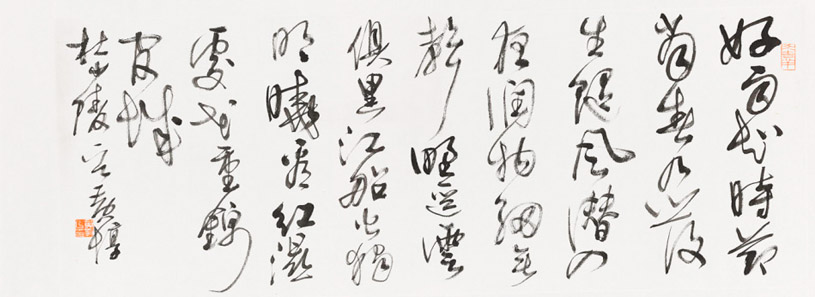 好雨知時節
當春乃發
生隨風潛入
夜潤物細無
聲野徑雲
俱黑江船火獨
明曉看紅濕
處花重錦
官城
杜陵